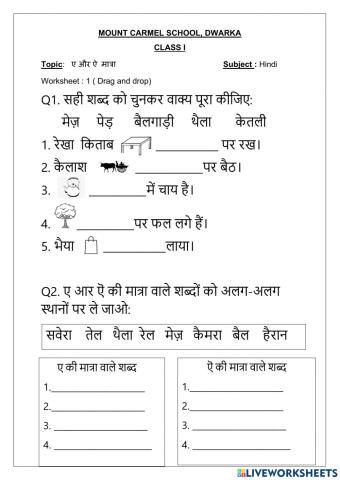 MOUNT CARMEL SCHOOL, DWARKA
CLASS I
Topic: ए और ऐ मात्रा Subject : Hindi
Worksheet : 1 ( Drag and drop)
Q1. सही शब्द को चुनकर वाक्य पूरा कीजिए:
मेज़ पेड़ बैलगाड़ी थैला केतली
1. रेखा किताब __________ पर रख।
2. कैलाश ___________पर बैठ।
3. _________में चाय है।
4. _________पर फल लगे हैं।
5. भैया __________लाया।
Q2. ए आर ऐ की मात्रा वाले शब्दों को अलग-अलग
स्थानों पर ले जाओ:
सवेरा तेल थैला रेल मेज़ कैमरा बैल हैरान
ए की मात्रा वाले शब्द
1.__________________
2.__________________
3. __________________
4. __________________
ऐ की मात्रा वाले शब्द
1.__________________
2.__________________
3. __________________
4. __________________
LIVEWORKSHEETS